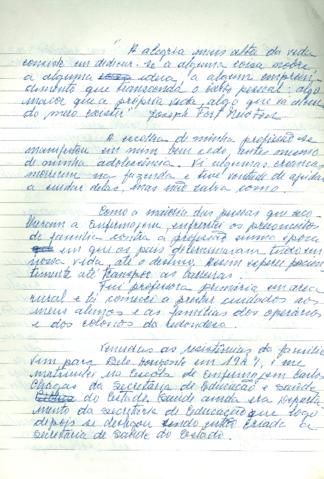 "A alegria mais alta da vida
consiste em dedicar-se a alguma coisa nobre
a alguma ideia, a algum empreen-
dimento que transcenda o bem pessoal: algo
maior que a própria vida, algo que vá além
do mero existir" Joseph Fort Newton
A escolha de minha profissão se
manifestou em mim bem cedo, antes mesmo
de minha adolescência. Vi algumas crianças
morrerem na fazenda e tive vontade de ajudar
a cuidar delas, mas não sabia como.
Como a maioria das pessoas que esco-
lheram a Enfermagem, enfrentei os preconceitos
de família contra a profissão numa época
em que os pais determinavam tudo em
nossa vida, até o destino. Assim esperei pacien-
temente até transpor as barreiras.
Fui professora primária em área
rural e lá comecei a prestar cuidados aos
meus alunos e as famílias dos operários
e dos colonos da redondeza.
Vencidas as resistências da família
vim para Belo Horizonte em 1947, e me
matriculei na Escola de Enfermagem Carlos
Chagas da Secretaria de Educação e Saúde
do Estado. Saúde ainda era Departa-
mento da Secretaria de Educação que logo
depois se desligou sendo então criada a
Secretaria de Saúde do Estado.